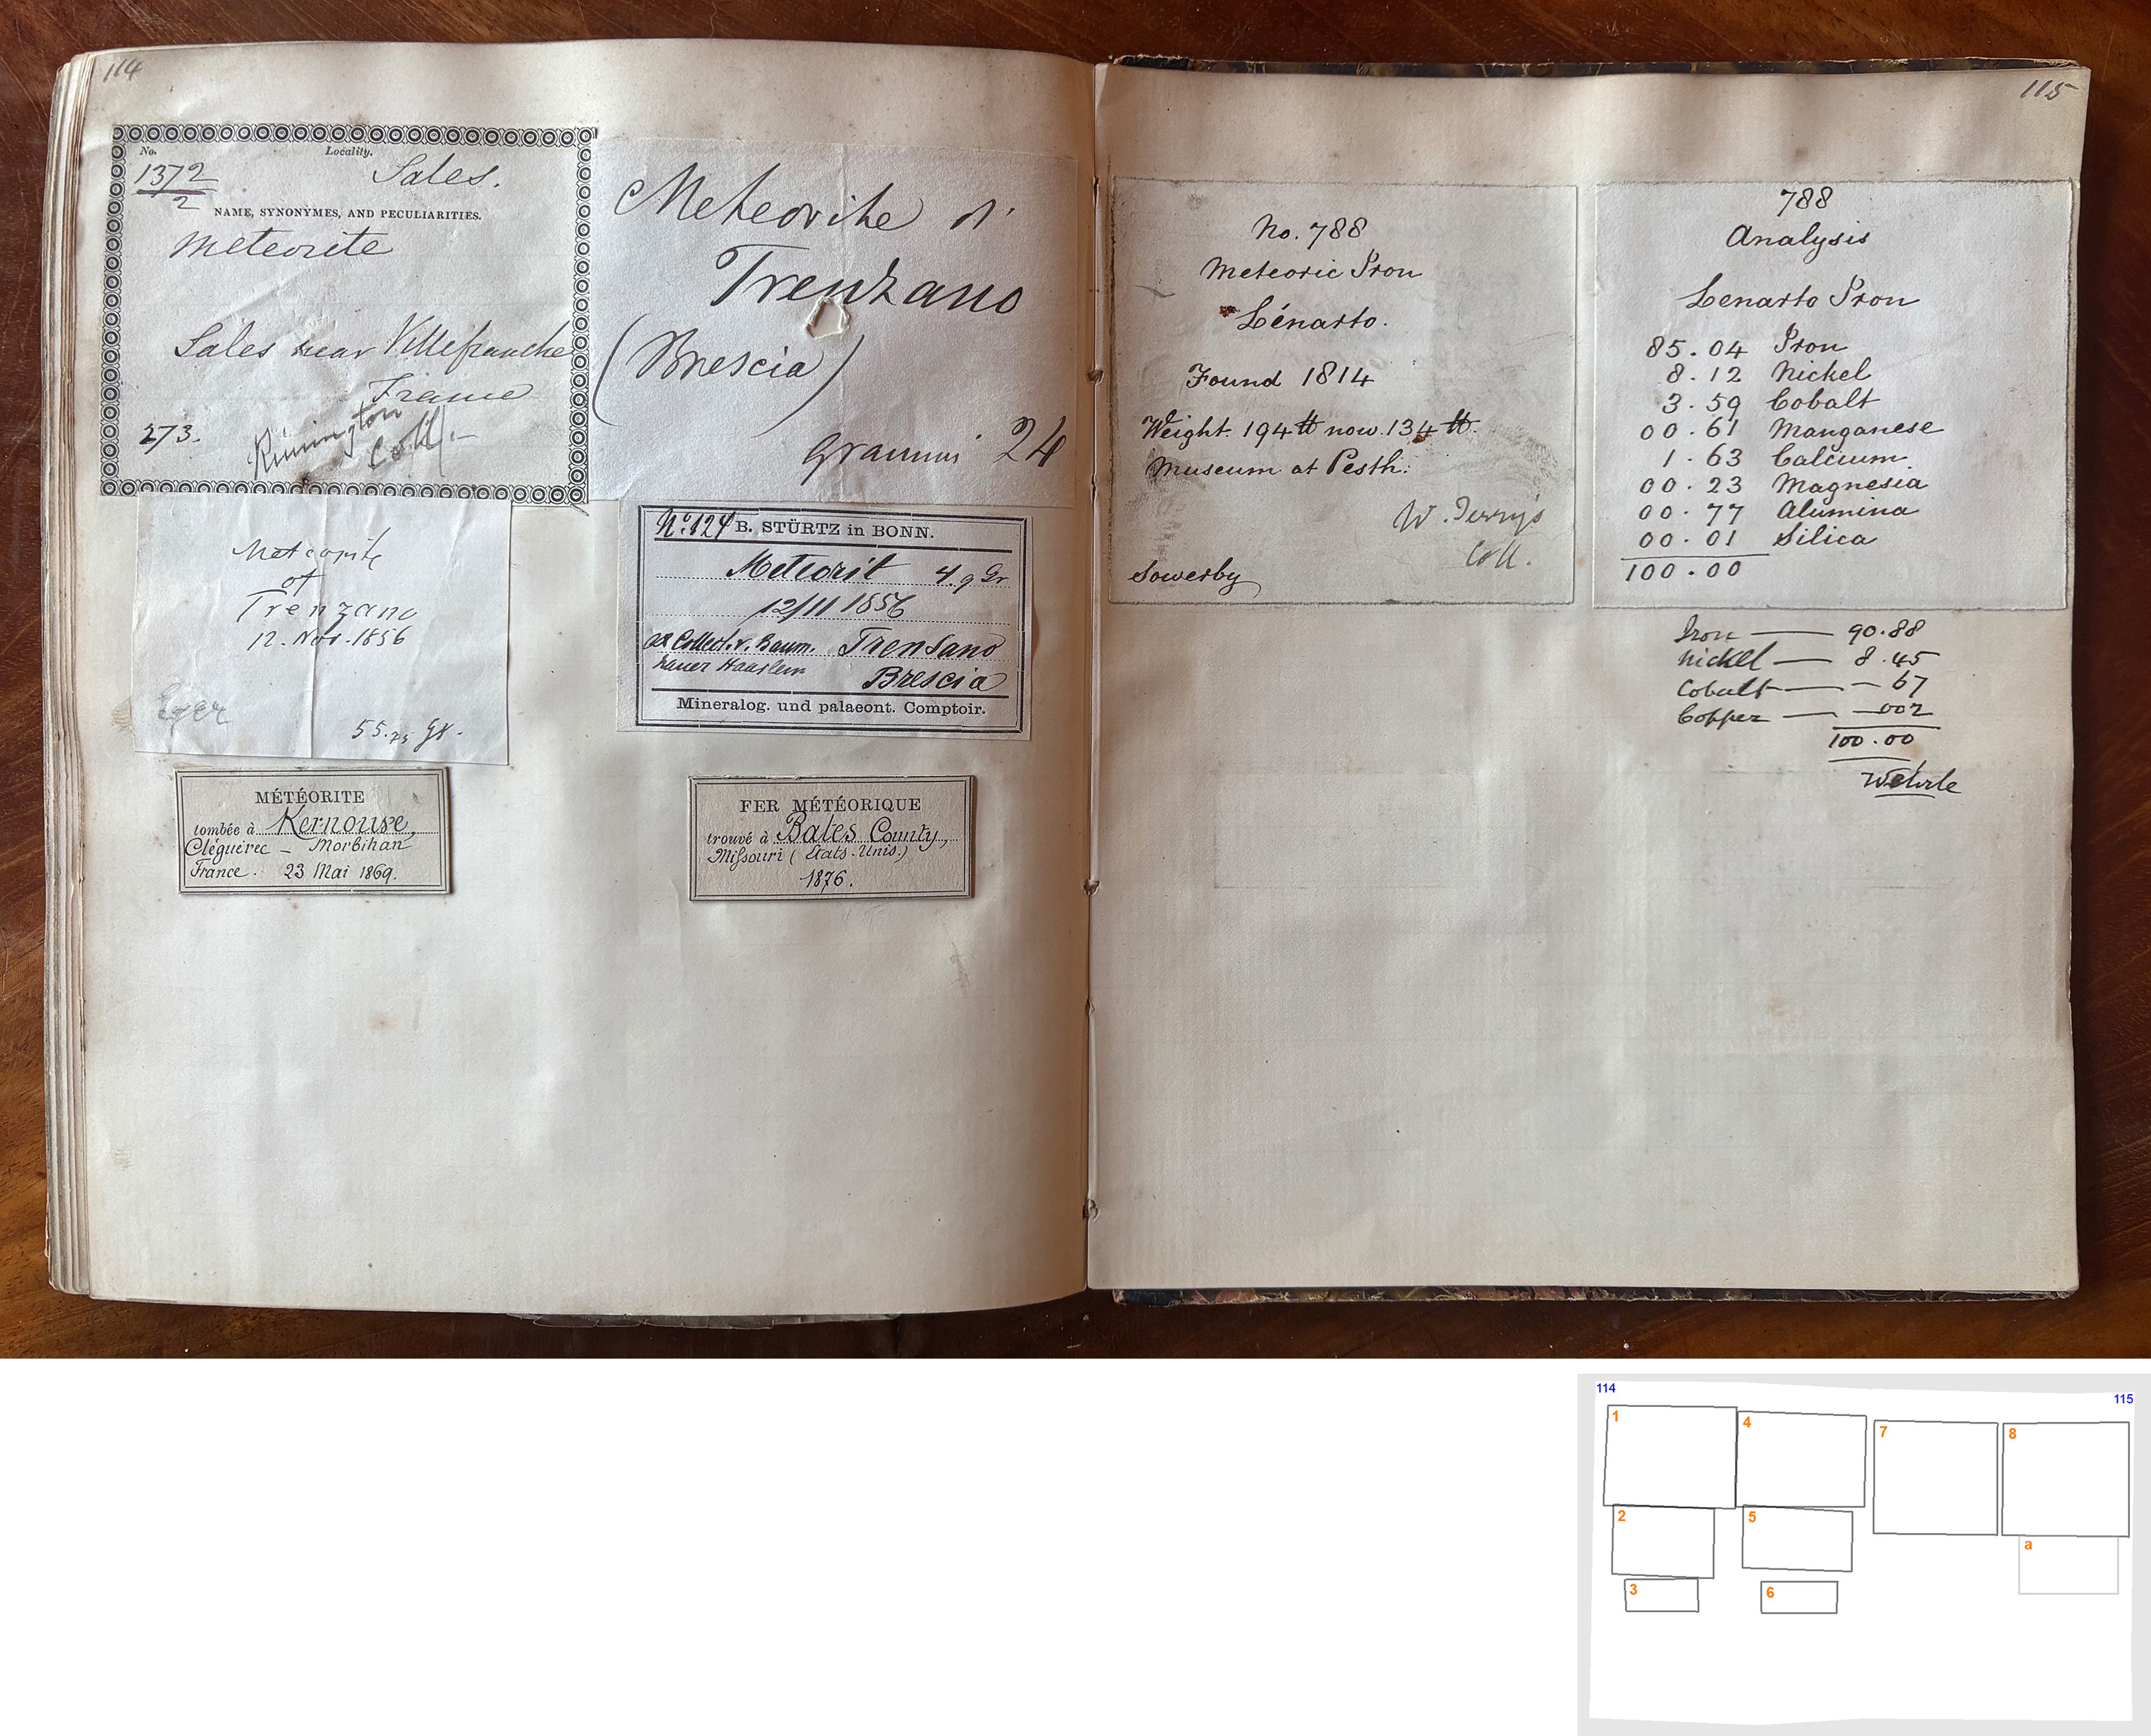 114
No.
Locality.
1372
2
Sales.
NAME, SYNONYMES, AND PECULIARITIES.
Meteorite
Sales near Villefranche
France
273.
Rimington
Coll.-
Meteorite
of
Trenzano
12. Nov. 1856
Eger
55.75 gr.
MÉTÉORITE
tombée à Kernouve,
Cléguérec - Morbihan
France. 23 Mai 1869.
Meteorite di
Trenzano
(Brescia)
grammi 24
No. 124 B. STÜRTZ in BONN.
Meteorit 4.9 Gr
12/11 1856
ex Collect. v. Baum. Trensano
hauer Haarlem Brescia
Mineralog. und palaeont. Comptoir.
FER MÉTÉORIQUE
trouvé à Bates County,
Missouri (Etats-Unis.)
1876.
115
No. 788
Meteoric Iron
Lénarto.
Found 1814
Weight. 194 lb now 134 lb.
Museum at Pesth.
W. Terry's
Coll.
Sowerby
788
Analysis
Lenarto Iron
85.04 Iron
8.12 Nickel
3.59 Cobalt
00.61 Manganese
1.63 Calcium
00.23 Magnesia
00.77 Alumina
00.01 Silica
100.00
Iron — 90.88
Nickel — 8.45
Cobalt — - 67
Copper — - 002
100.00
Wehrle
114
115
1
4
7
8
2
5
a
3
6